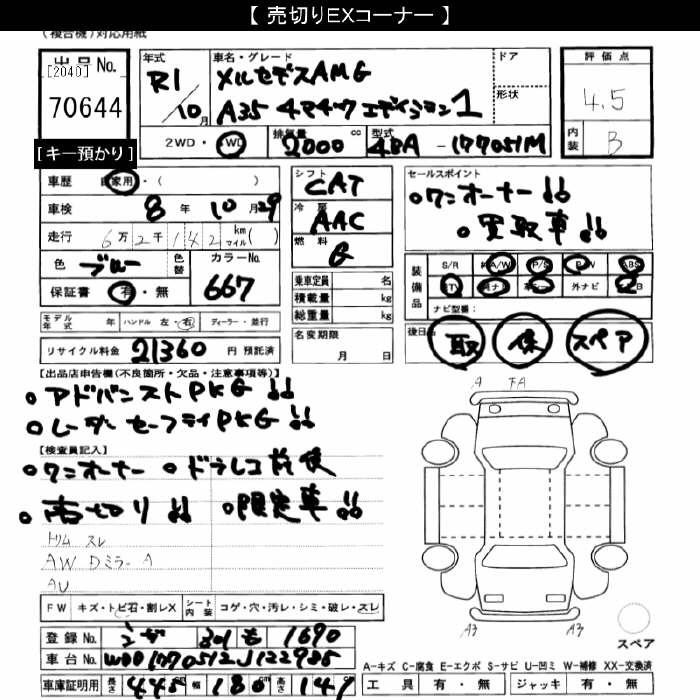 【 売切りEXコーナー 】
(複合機)対応用紙
出品No.
[2040]
70644
[キー預かり]
年式 R1/10月
車名・グレード
メルセデスAMG
A35 4マチック エディション1
ドア
形状
評価点
4.5
内装 B
2WD・4WD 排気量 2000 cc 型式 4BA-177051M
車歴 自家用・( )
車検 8年 10月 29
走行 6万2千142 km マイル( )
色 ブルー 色替 カラーNo. 667
保証書 有・無
モデル年式 年 ハンドル 左・右 ディーラー・並行
リサイクル料金 21360 円 預託済
シフト CAT
冷房 AAC
燃料 G
乗車定員 名
積載量 kg
総重量 kg
名変期限
月 日
セールスポイント
。ワンオーナー!!
。買取車!!
装備品
S/R 純A/W P/S P/W ABS
TV 純ナビ 革シート 外ナビ エアB
ナビ型番:
後日品 取 保 スペア
【出品店申告欄(不良箇所・欠品・注意事項等)】
。アドバンストPKG!!
。レーダーセーフティPKG!!
【検査員記入】
。ワンオーナー 。ドラレコ前後
。売切り!! 。限定車!!
トリム スレ
AW Dミラー A
AU
A FA
A3 A3
スペア
FW キズ・トビ石・割レX シート内装 コゲ・穴・汚レ・シミ・破レ・スレ
登録No. 301 も 1690
車台No. WDD1770512J122985
車庫証明用 長さ 445 cm 幅 180 cm 高さ 141
A-キズ C-腐食 E-エクボ S-サビ U-凹ミ W-補修 XX-交換済
工具 有・無 ジャッキ 有・無